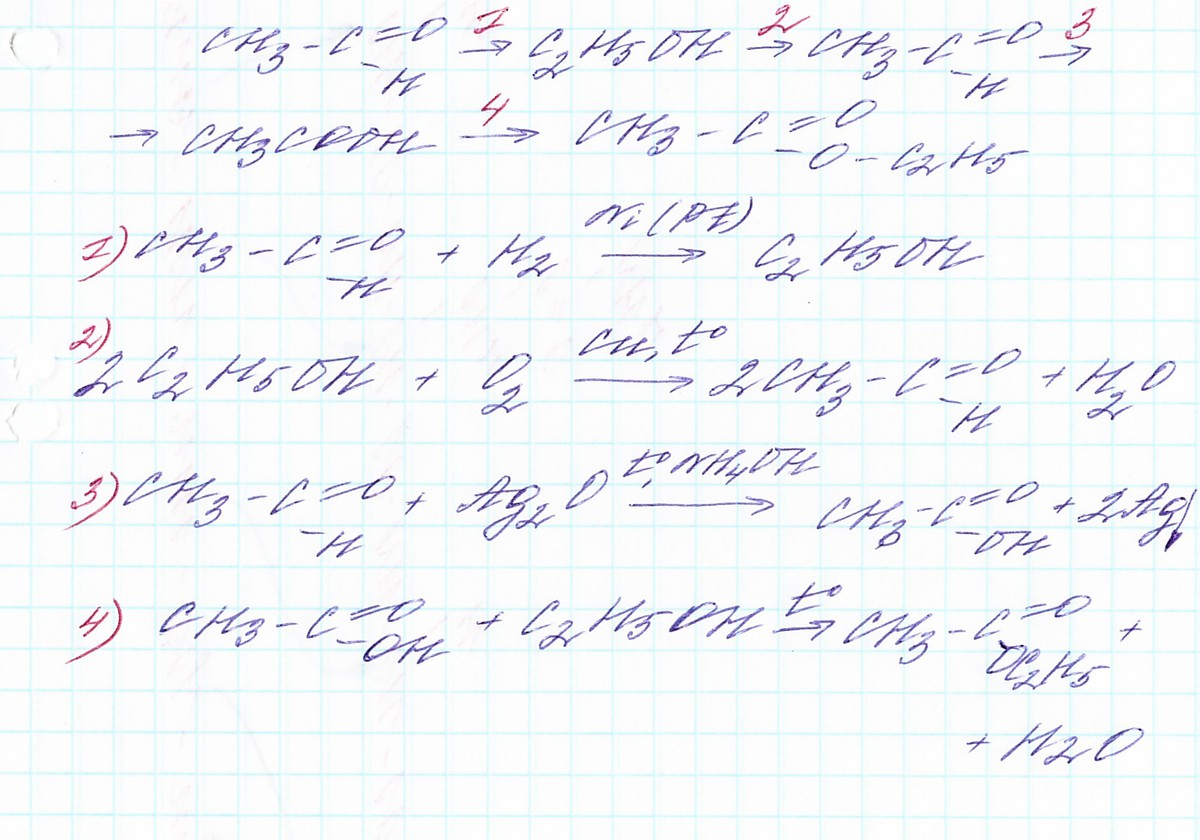 CH3-C=O-H 1→ C2H5OH 2→ CH3-C=O-H 3→
→ CH3COOH 4→ CH3-C=O-O-C2H5
1) CH3-C=O-H + H2 Ni(Pt)→ C2H5OH
2) 2C2H5OH + O2 Cu, t°→ 2CH3-C=O-H + H2O
3) CH3-C=O-H + Ag2O t°, NH4OH→ CH3-C=O-OH + 2Ag↓
4) CH3-C=O-OH + C2H5OH t°→ CH3-C=O OC2H5 +
+ H2O